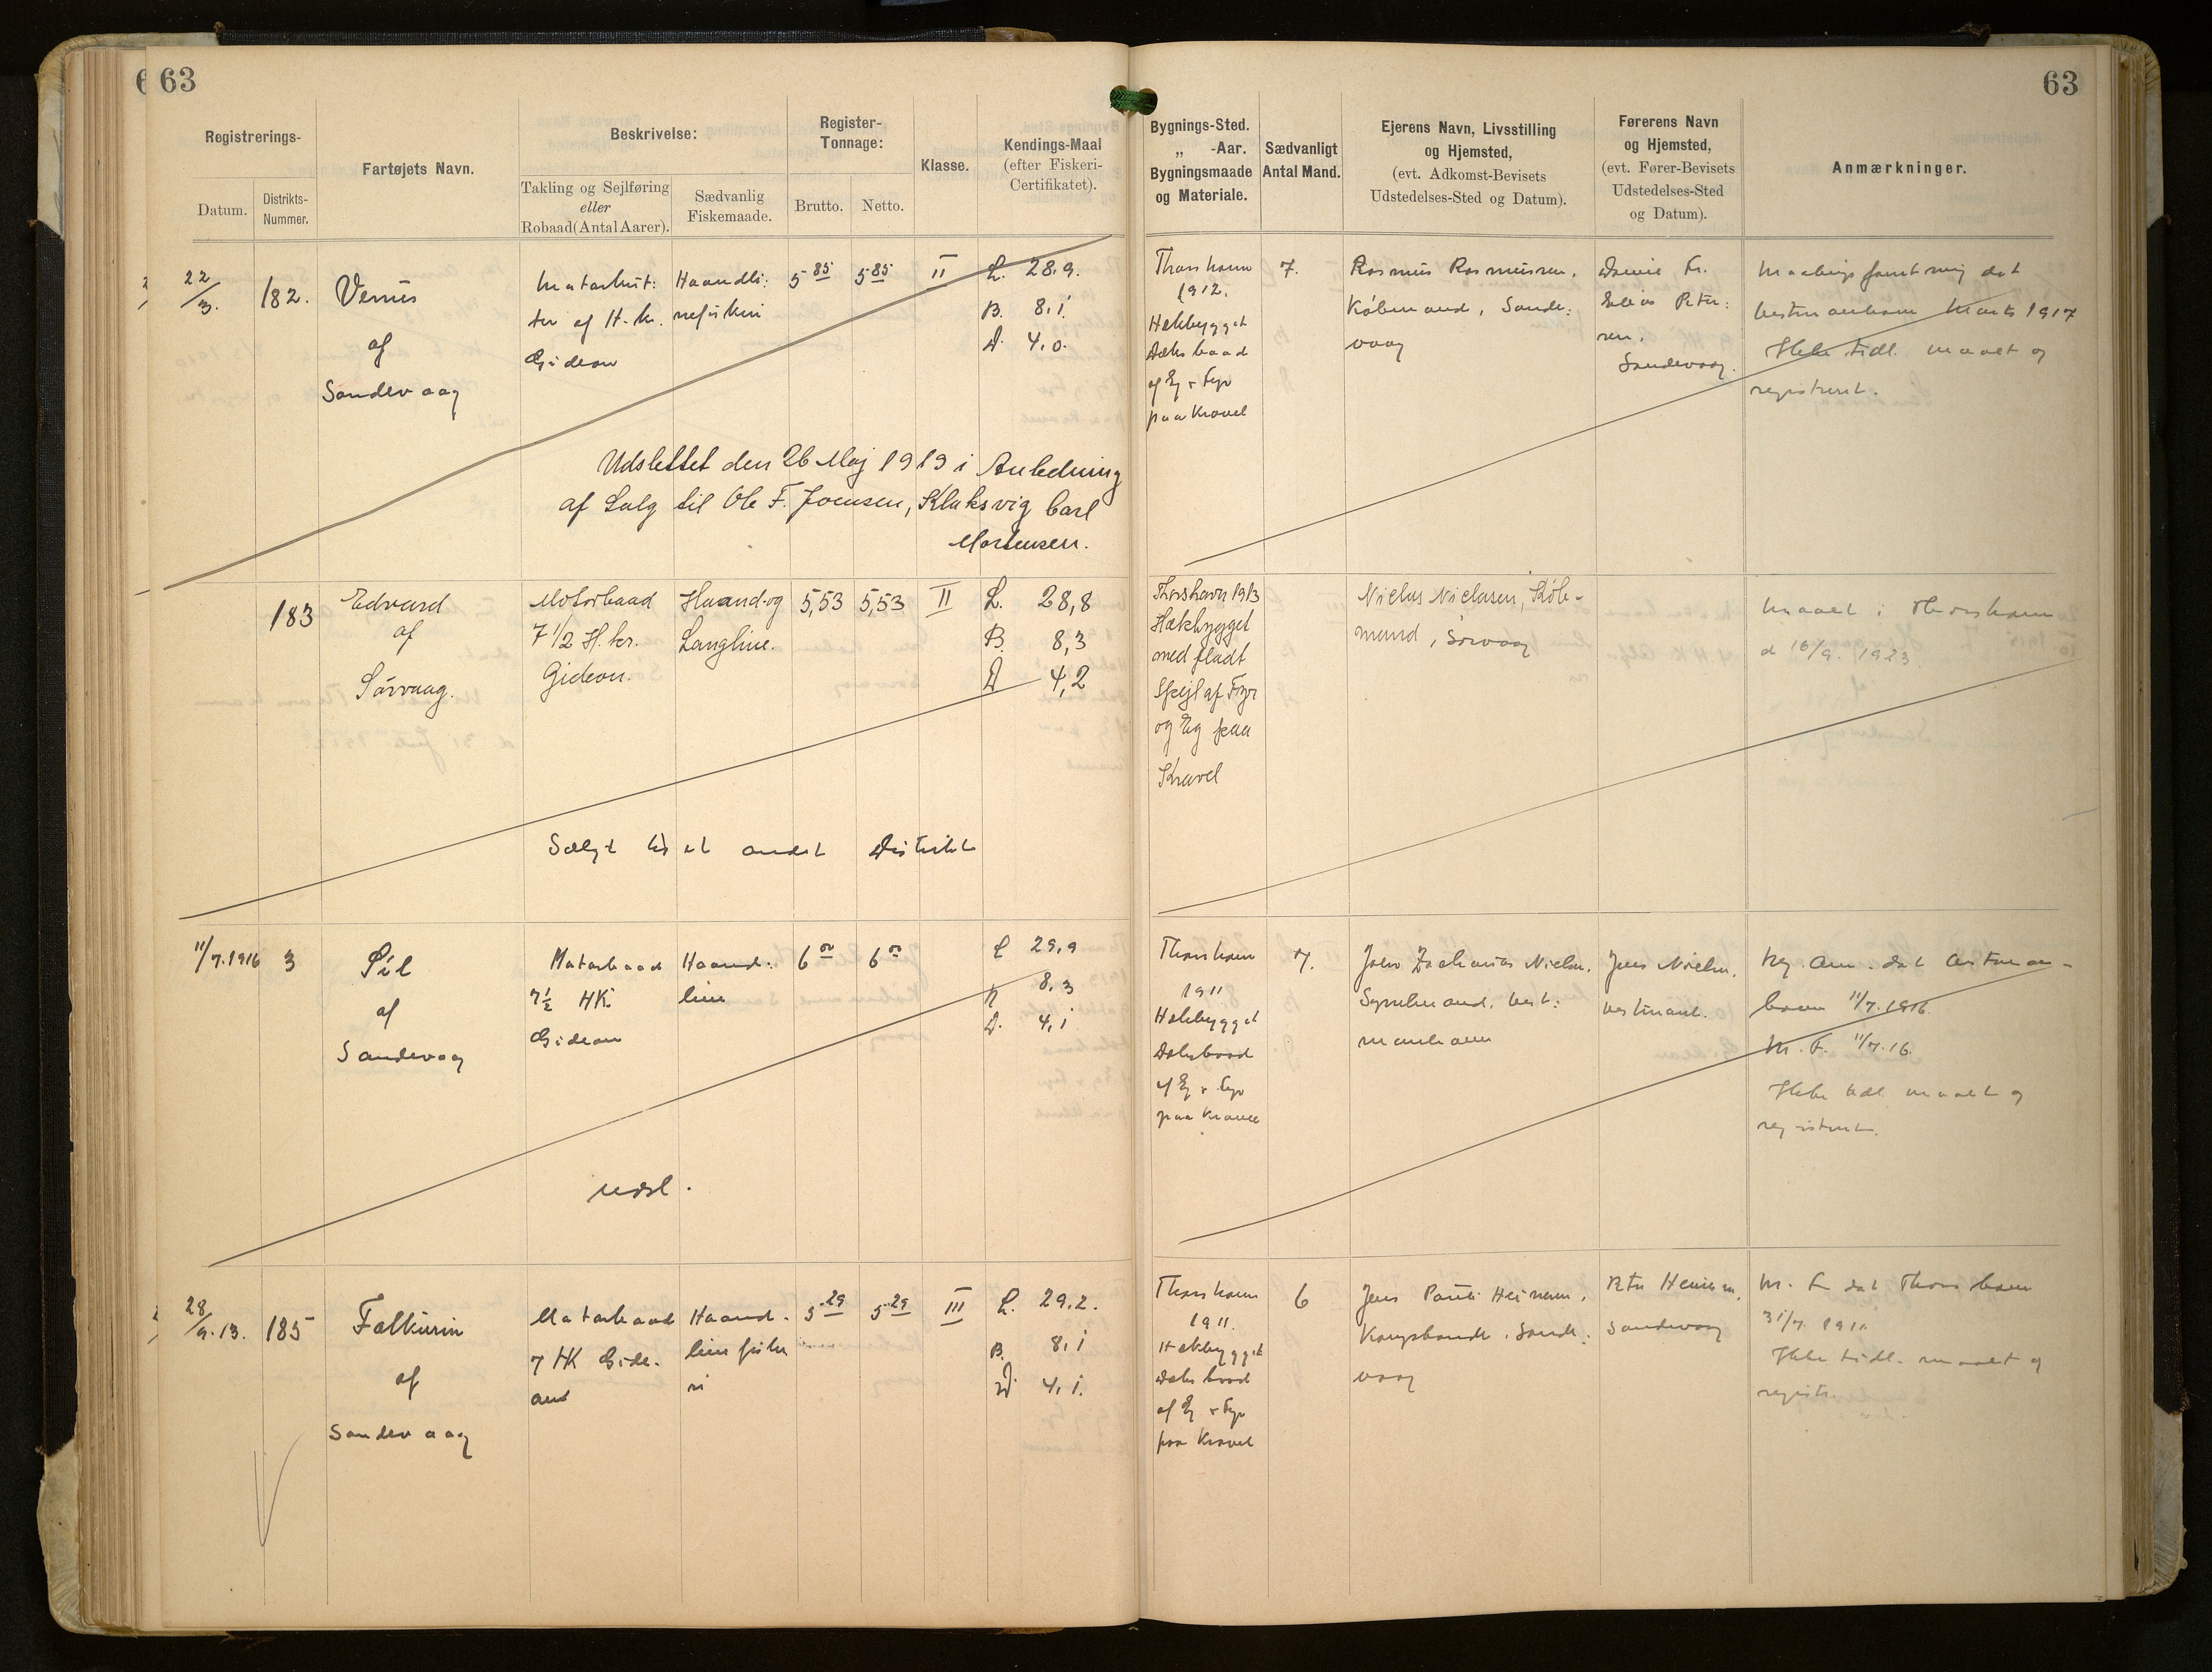 63
63
Registrerings-
Datum.
Distrikts-
Nummer.
Fartøjets Navn.
Beskrivelse:
Takling og Sejlføring
eller
Robaad (Antal Aarer).
Sædvanlig
Fiskemaade.
Register-
Tonnage:
Brutto.
Netto.
Klasse.
Kendings-Maal
(efter Fiskeri-
Certifikatet).
Bygnings-Sted.
„ -Aar.
Bygningsmaade
og Materiale.
Sædvanligt
Antal Mand.
Ejerens Navn, Livsstilling
og Hjemsted,
(evt. Adkomst-Bevisets
Udstedelses-Sted og Datum).
Førerens Navn
og Hjemsted,
(evt. Fører-Bevisets
Udstedelses-Sted
og Datum).
Anmærkninger.
22/3.
182.
Venus
af
Sandevaag
af H. kr.
Gideon
Haandli:
nefiskeri
5 85
5 85
II
L. 28.9.
B. 8,1.
D. 4,0.
Thorshavn
1912.
Hækbygget
Dæksbaad
af Eg & Fyr
paa Kravel
7.
Rasmus Rasmussen,
Købmand, Sande:
vaag
Peter:
sen,
Sandevaag.
dat
Vestmanhavn Marts 1917
Ikke tidl. maalt og
registreret.
Udslettet den 26 Maj 1919 i Anledning
af Salg til Ole F. Joensen, Klaksvig Carl
Mortensen.
183
Edvard
af
Sörvaag.
Motorbaad
7 1/2 H. kr.
Gideon.
Haand-og
Langline.
5,53
5,53
II
L. 28,8
B. 8,3
D 4,2
Thorshavn 1913
Hækbygget
med fladt
Spejl af Fyr
og Eg paa
Kravel
Niclas Niclasen, Køb-
mand, Sörvaag
Maalt i Thorshavn
d 16/9. 1923.
Sælgt til et andet Distrikt
11/7.1916
3
Síl
af
Sandevaag
Motorbaad
7½ HK.
Gideon
Haand:
line
6 00
6 00
L 29,9
B 8,3
D. 4,1
Thorshavn
1911
Hækbygget
Dæksbaad
af Eg & Fyr
paa Kravel
7.
Zacharias Nielsen,
Vest:
manhavn
Jens Nielsen,
Vestmanh.
Reg. Anm. dat Vestman-
havn 11/7.1916.
M. F. 11/7.16.
Ikke tidl maalt og
registreret.
udsl.
28/9.13.
185
Falkurin
af
Sandevaag
Motorbaad
7 HK Gide-
on
Haand-
linefiske
ri
5.29
5.29
III
L. 29.2.
B. 8,1
D. 4,1.
Thorshavn
1911.
Hækbygget
Dæksbaad
af Eg & Fyr
paa Kravel
6
Jens Pauli Heinesen,
Kongsbonde, Sande:
vaag
Heinesen,
Sandevaag
M. F. dat Thorshavn
31/7. 1911
Ikke tidl. maalt og
registr.